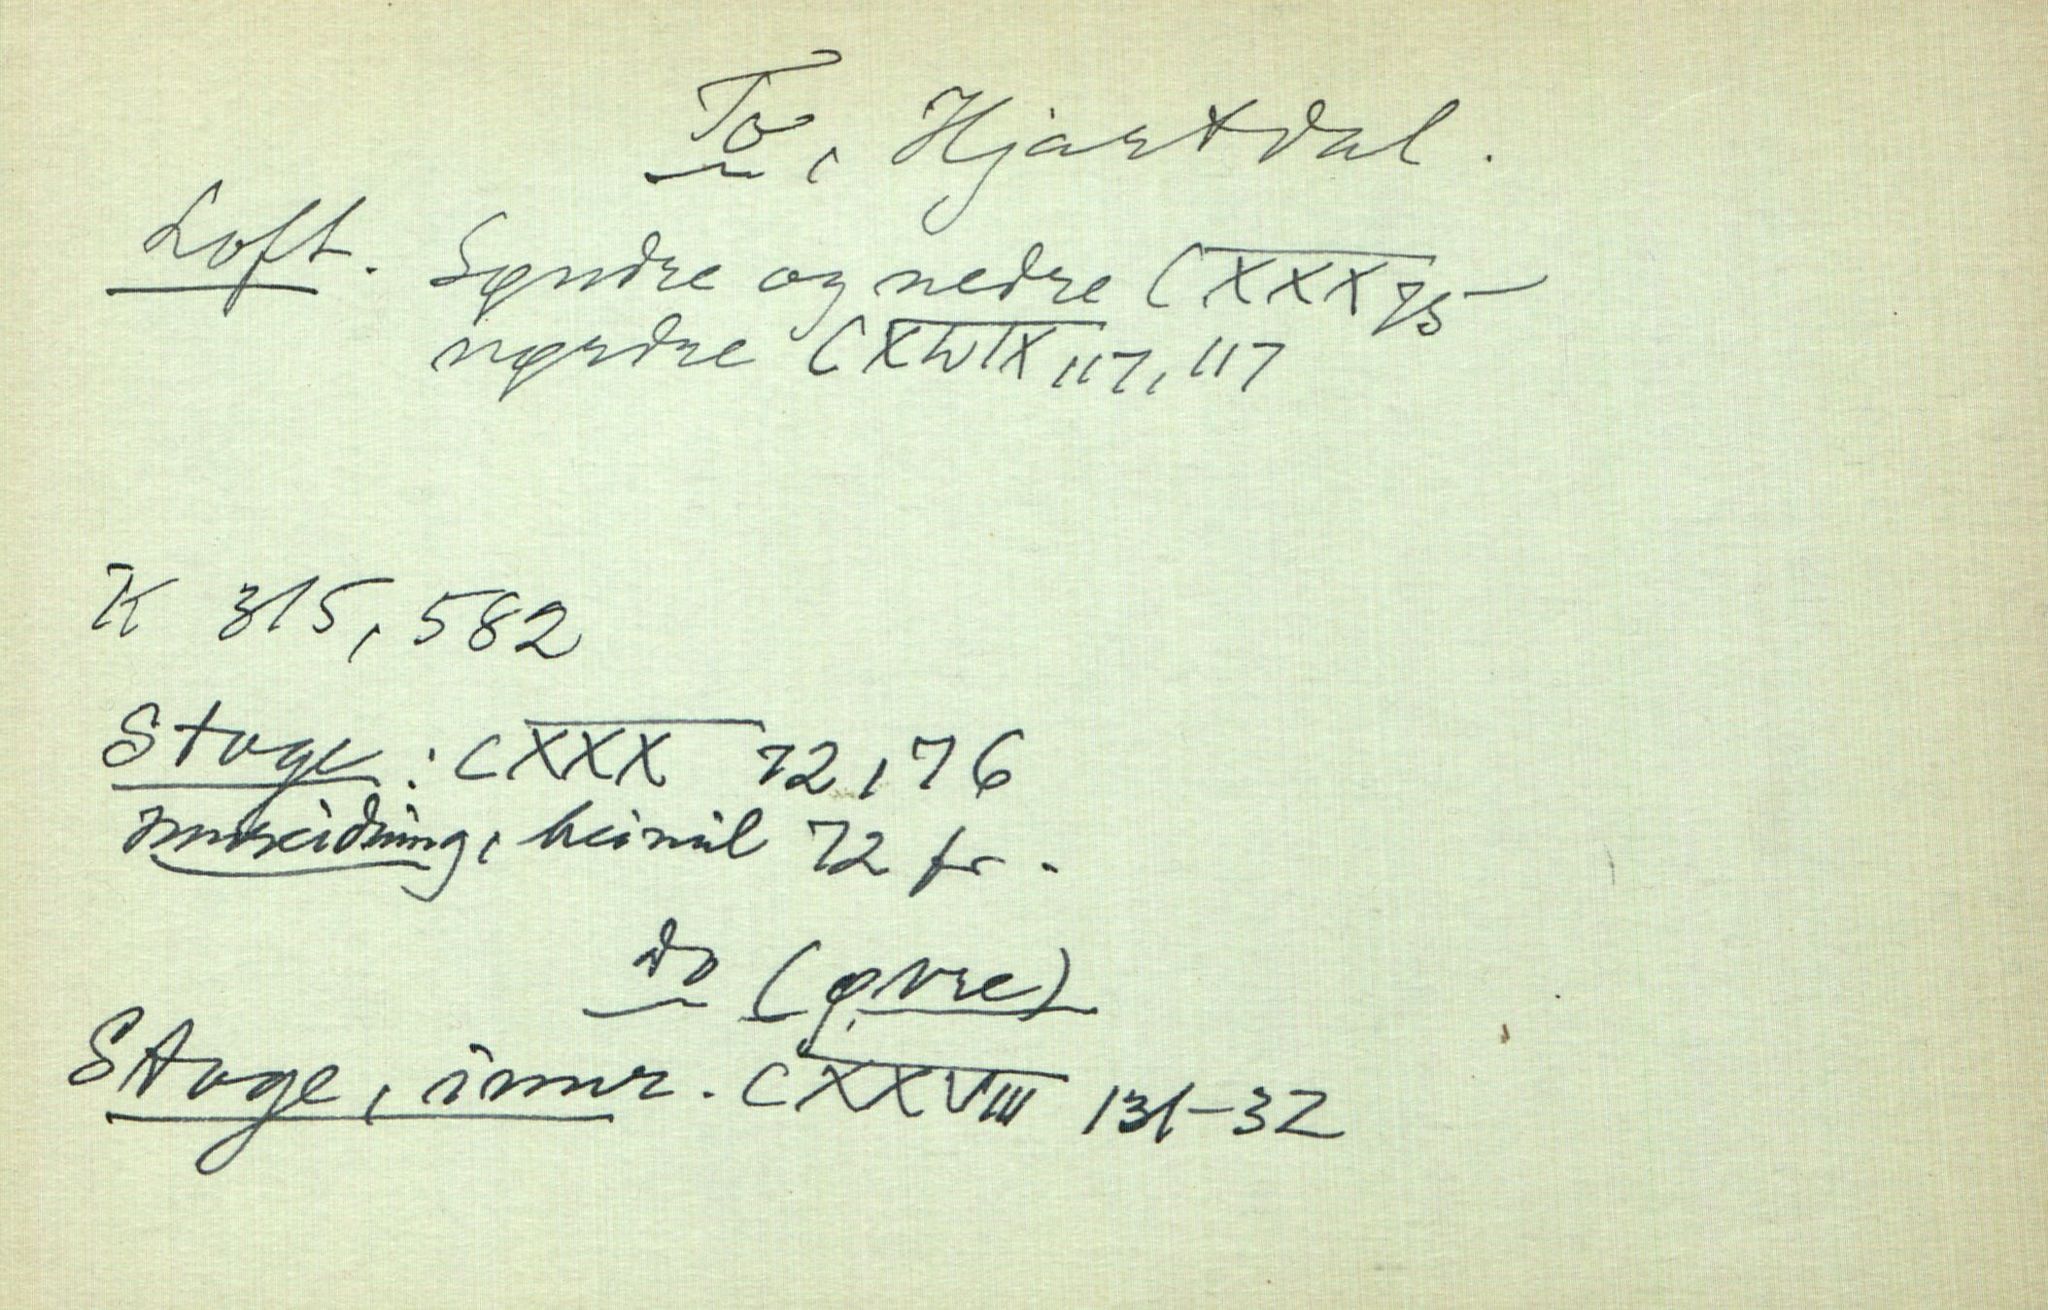 To, Hjartdal.
Loft. Søndre og nedre CXXX 75
nørdre 117, 117
K 315, 582
Stoge: CXXX 72, 76
72 fr.
do (øvre)
Stoge, innr. CXXVIII 131-32